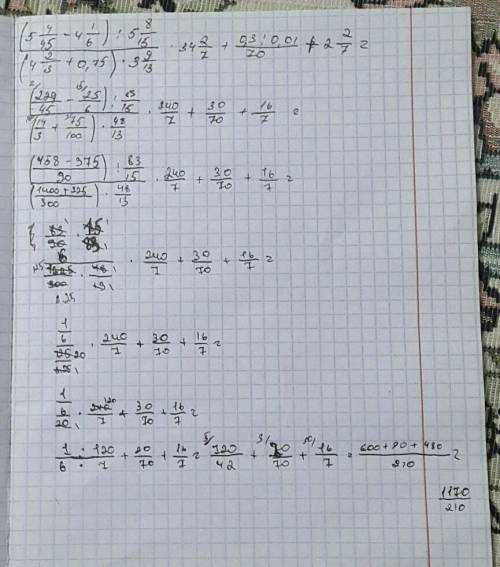 (5 4/45 - 4 1/6) : 5 8/15
(4 2/3 + 0,75) · 3 9/13
· 34 2/7 + 0,3 : 0,01 / 70 + 2 2/7 =
(229/45 - 25/6) : 83/15
(14/3 + 75/100) · 48/13
· 240/7 + 30/70 + 16/7 =
(458 - 375 / 90) : 83/15
(1400 + 225 / 300) · 48/13
· 240/7 + 30/70 + 16/7 =
· 240/7 + 30/70 + 16/7 =
1/6
· 240/7 + 30/70 + 16/7 =
1/6 / 20 · 240/7 + 30/70 + 16/7 =
1 · 120 / 6 · 7 + 30/70 + 16/7 = 120/42 + 30/70 + 16/7 = 600 + 90 + 480 / 210 =
1170/210